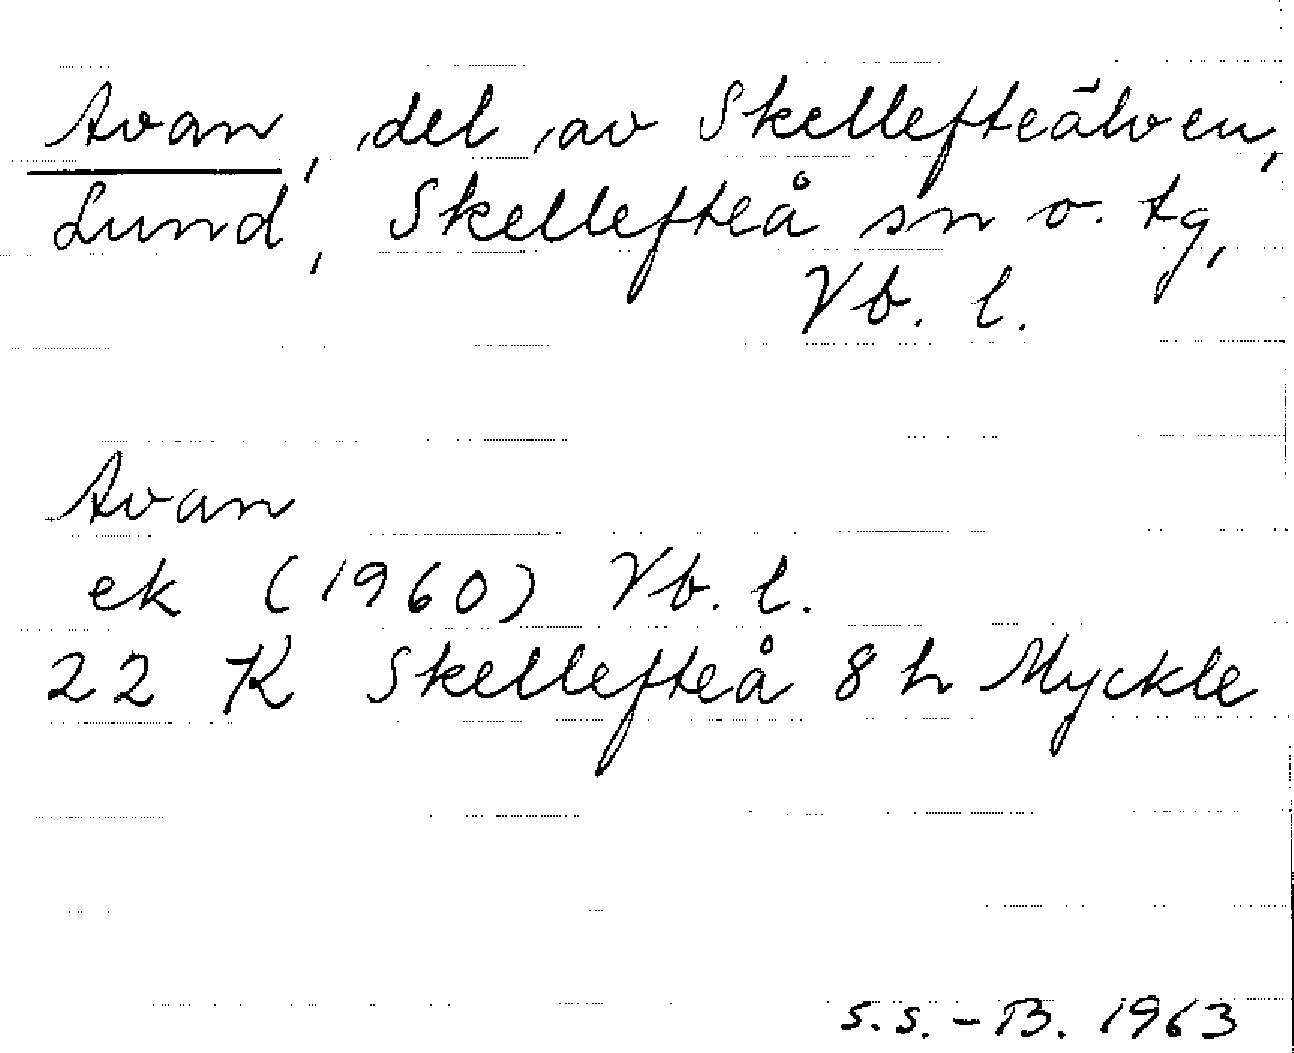 Avan, del av Skellefteälven,
Lund, Skellefteå sn o. tg,
Vb. l.
Avan
ek (1960) Vb. l.
22 K Skellefteå 8 h Myckle
S.S. - B. 1963